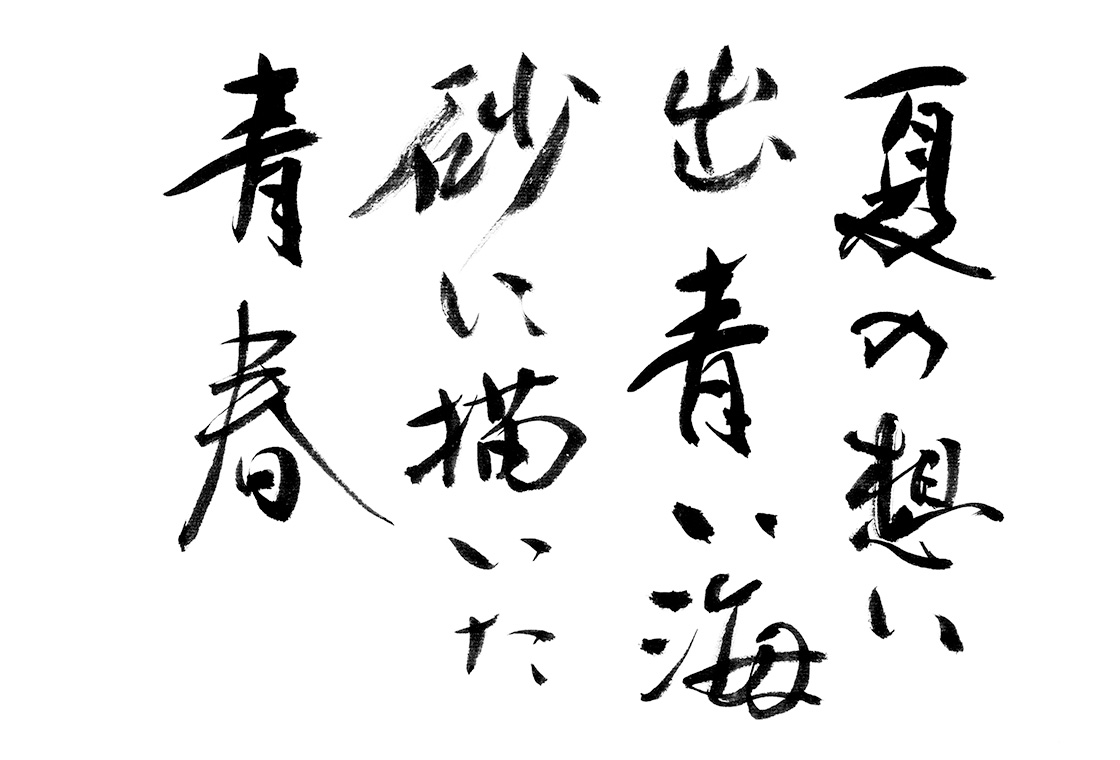 夏の想い
出青い海
砂に描いた
青春